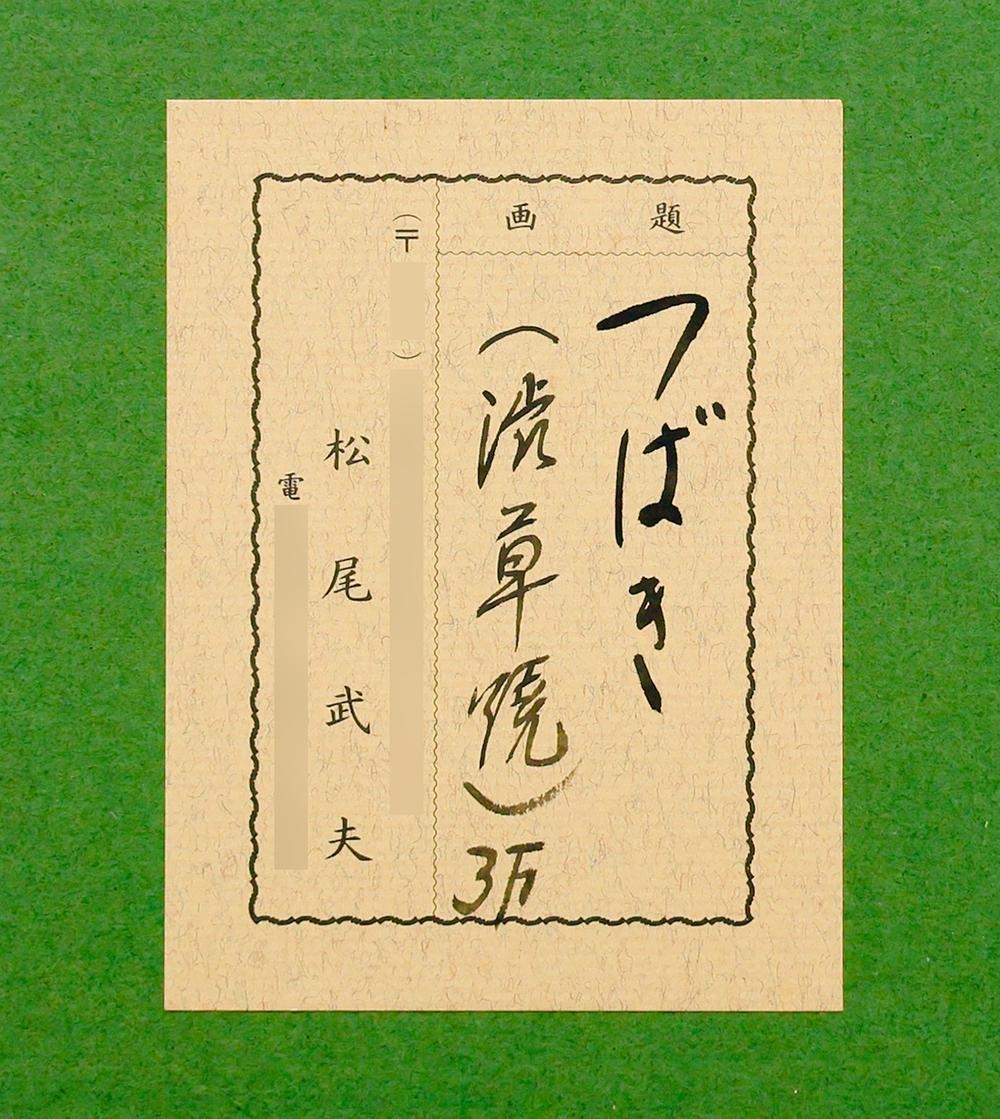 題画
つばき
（渋草焼）3万
（〒 ）
松尾武夫
電